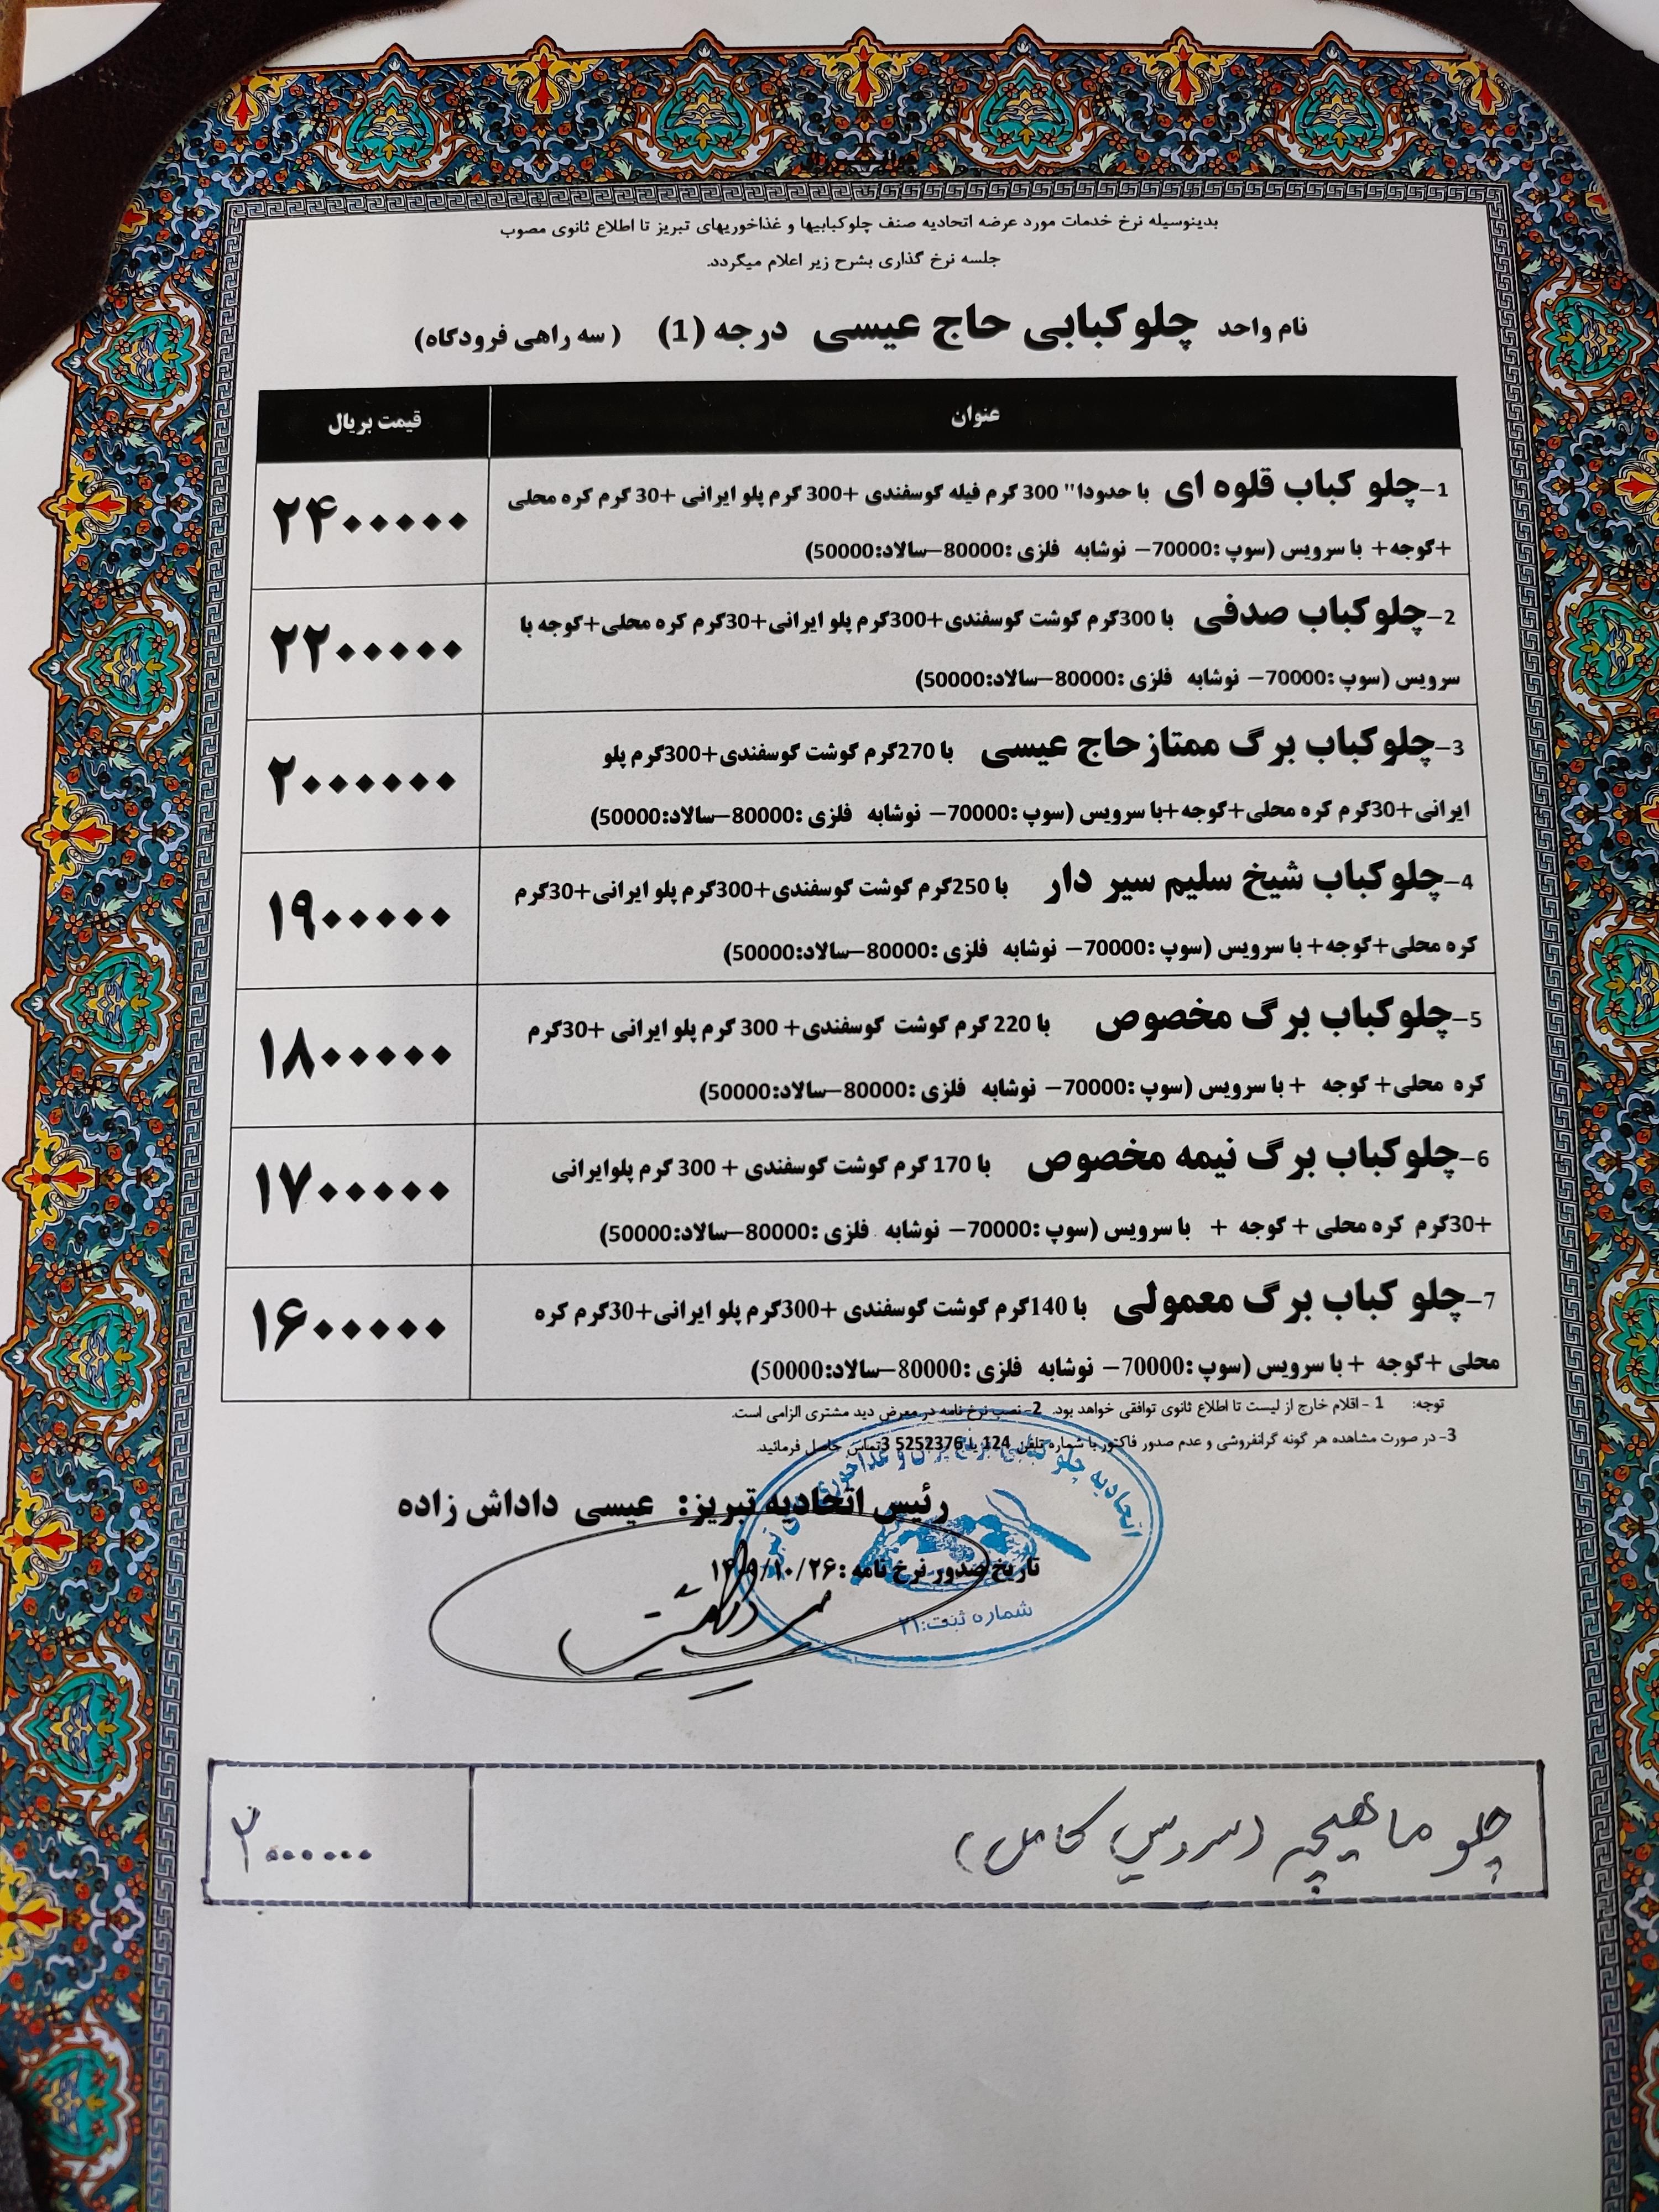 بدینوسیله نرخ خدمات مورد عرضه اتحادیه صنف چلوکبابیها و غذاخوریهای تبریز تا اطلاع ثانوی مصوب
جلسه نرخ گذاری بشرح زیر اعلام میگردد.
نام واحد چلوکبابی حاج عیسی درجه (1) (سه راهی فرودگاه)
عنوان قیمت بریال
1–چلو کباب قلوه ای با حدودا" 300 گرم فیله گوسفندی +300 گرم پلو ایرانی +30 گرم کره محلی
+گوجه+ با سرویس (سوپ :70000– نوشابه فلزی :80000–سالاد:50000)
۲۴۰۰۰۰۰
2–چلوکباب صدفی با 300گرم گوشت گوسفندی+300گرم پلو ایرانی+30گرم کره محلی+گوجه با
سرویس (سوپ :70000– نوشابه فلزی :80000–سالاد:50000)
۲۲۰۰۰۰۰
3–چلوکباب برگ ممتازحاج عیسی با 270گرم گوشت گوسفندی+300گرم پلو
ایرانی+30گرم کره محلی+گوجه+با سرویس (سوپ :70000– نوشابه فلزی :80000–سالاد:50000)
۲۰۰۰۰۰۰
4–چلوکباب شیخ سلیم سیر دار با 250گرم گوشت گوسفندی+300گرم پلو ایرانی+30گرم
کره محلی+گوجه+ با سرویس (سوپ :70000– نوشابه فلزی :80000–سالاد:50000)
۱۹۰۰۰۰۰
5–چلوکباب برگ مخصوص با 220 گرم گوشت گوسفندی+ 300 گرم پلو ایرانی +30گرم
کره محلی+ گوجه + با سرویس (سوپ :70000– نوشابه فلزی :80000–سالاد:50000)
۱۸۰۰۰۰۰
6–چلوکباب برگ نیمه مخصوص با 170 گرم گوشت گوسفندی + 300 گرم پلوایرانی
+30گرم کره محلی + گوجه + با سرویس (سوپ :70000– نوشابه فلزی :80000–سالاد:50000)
۱۷۰۰۰۰۰
7–چلو کباب برگ معمولی با 140گرم گوشت گوسفندی +300گرم پلو ایرانی+30گرم کره
محلی +گوجه + با سرویس (سوپ :70000– نوشابه فلزی :80000–سالاد:50000)
۱۶۰۰۰۰۰
توجه: 1 - اقلام خارج از لیست تا اطلاع ثانوی توافقی خواهد بود. 2- نصب نرخ نامه در معرض دید مشتری الزامی است.
3- در صورت مشاهده هر گونه گرانفروشی و عدم صدور فاکتور با شماره تلفن 124 یا 5252376 3تماس حاصل فرمائید.
رئیس اتحادیه تبریز: عیسی داداش زاده
تاریخ صدور نرخ نامه :
شماره ثبت:۲۱
چلو ماهیچه (سرویس کامل)
۲۰۰۰۰۰۰